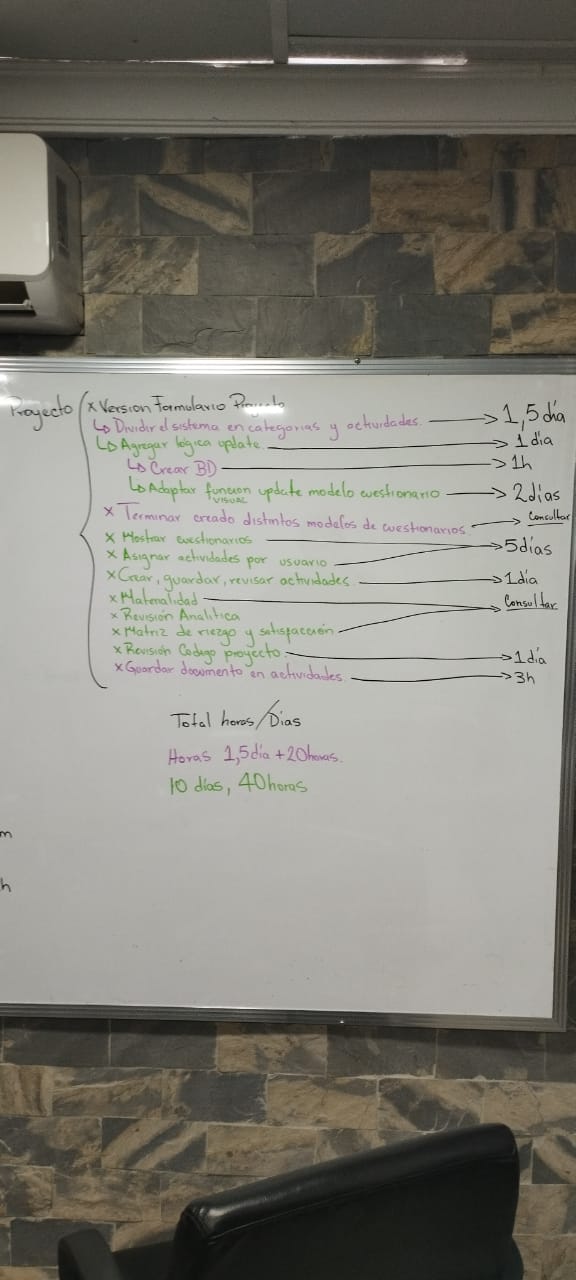 Proyecto x Version Formulario Proyecto
↳ Dividir el sistema en categorias y actividades. → 1,5 día
↳ Agregar lógica update. → 1 día
↳ Crear BD → 1h
↳ Adaptar funcion update modelo cuestionario → 2 días
VISUAL
x Terminar creado distintos modelos de cuestionarios. → Consultar
x Mostrar cuestionarios → 5 días
x Asignar actividades por usuario
x Crear, guardar, revisar actividades. → 1 día
x Materialidad → Consultar
x Revisión Analítica
x Matriz de riezgo y satisfacción
x Revisión Codigo proyecto. → 1 día
x Guardar documento en actividades. → 3h
Total horas/Dias
Horas 1,5 día + 20 horas.
10 días, 40 horas
m
h